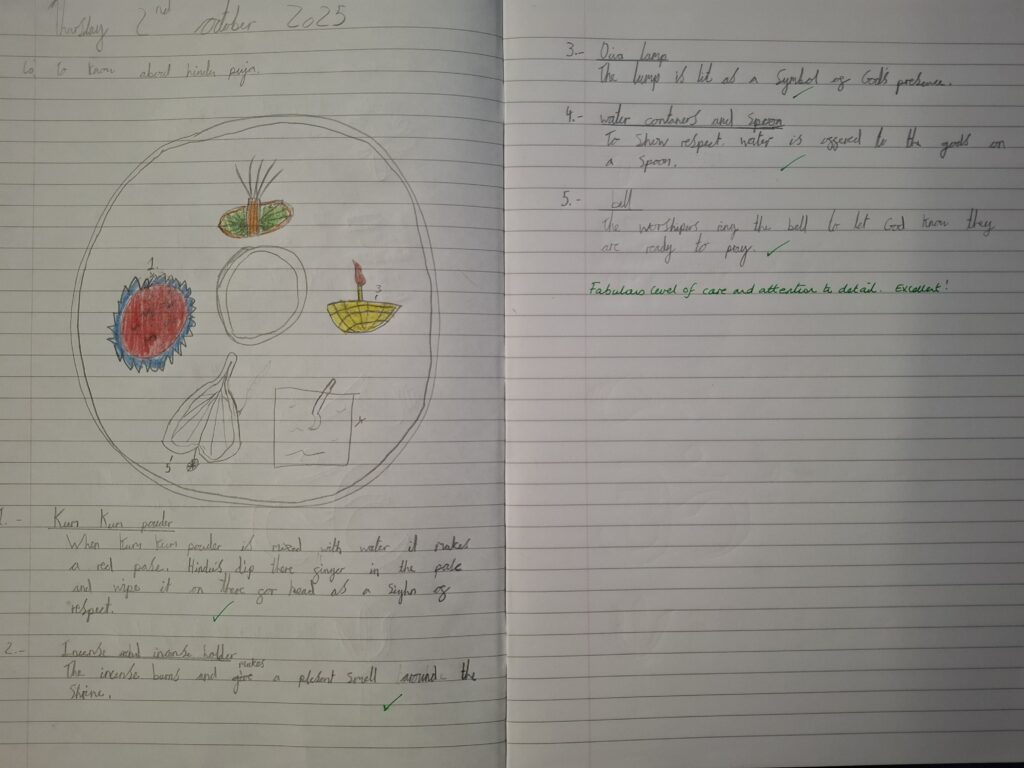 Thursday 2nd october 2025
Lo To know about hindu puja.
1.
3
5
1.- Kum Kum powder
When kum kum powder is mixed with water it makes
a red paste. Hindu's dip there finger in the paste
and wipe it on there for head as a sighn of
respect.
2.- Incense and incense holder
The incense burns and give makes a plesent smell around the
Shrine.
3.- Diva lamp
The lamp is lit as a symbol of God's presence.
4.- water containers and spoon
To show respect water is offered to the gods on
a spoon.
5.- bell
The worshipers ring the bell to let God know they
are ready to pray.
Fabulous level of care and attention to detail. Excellent!